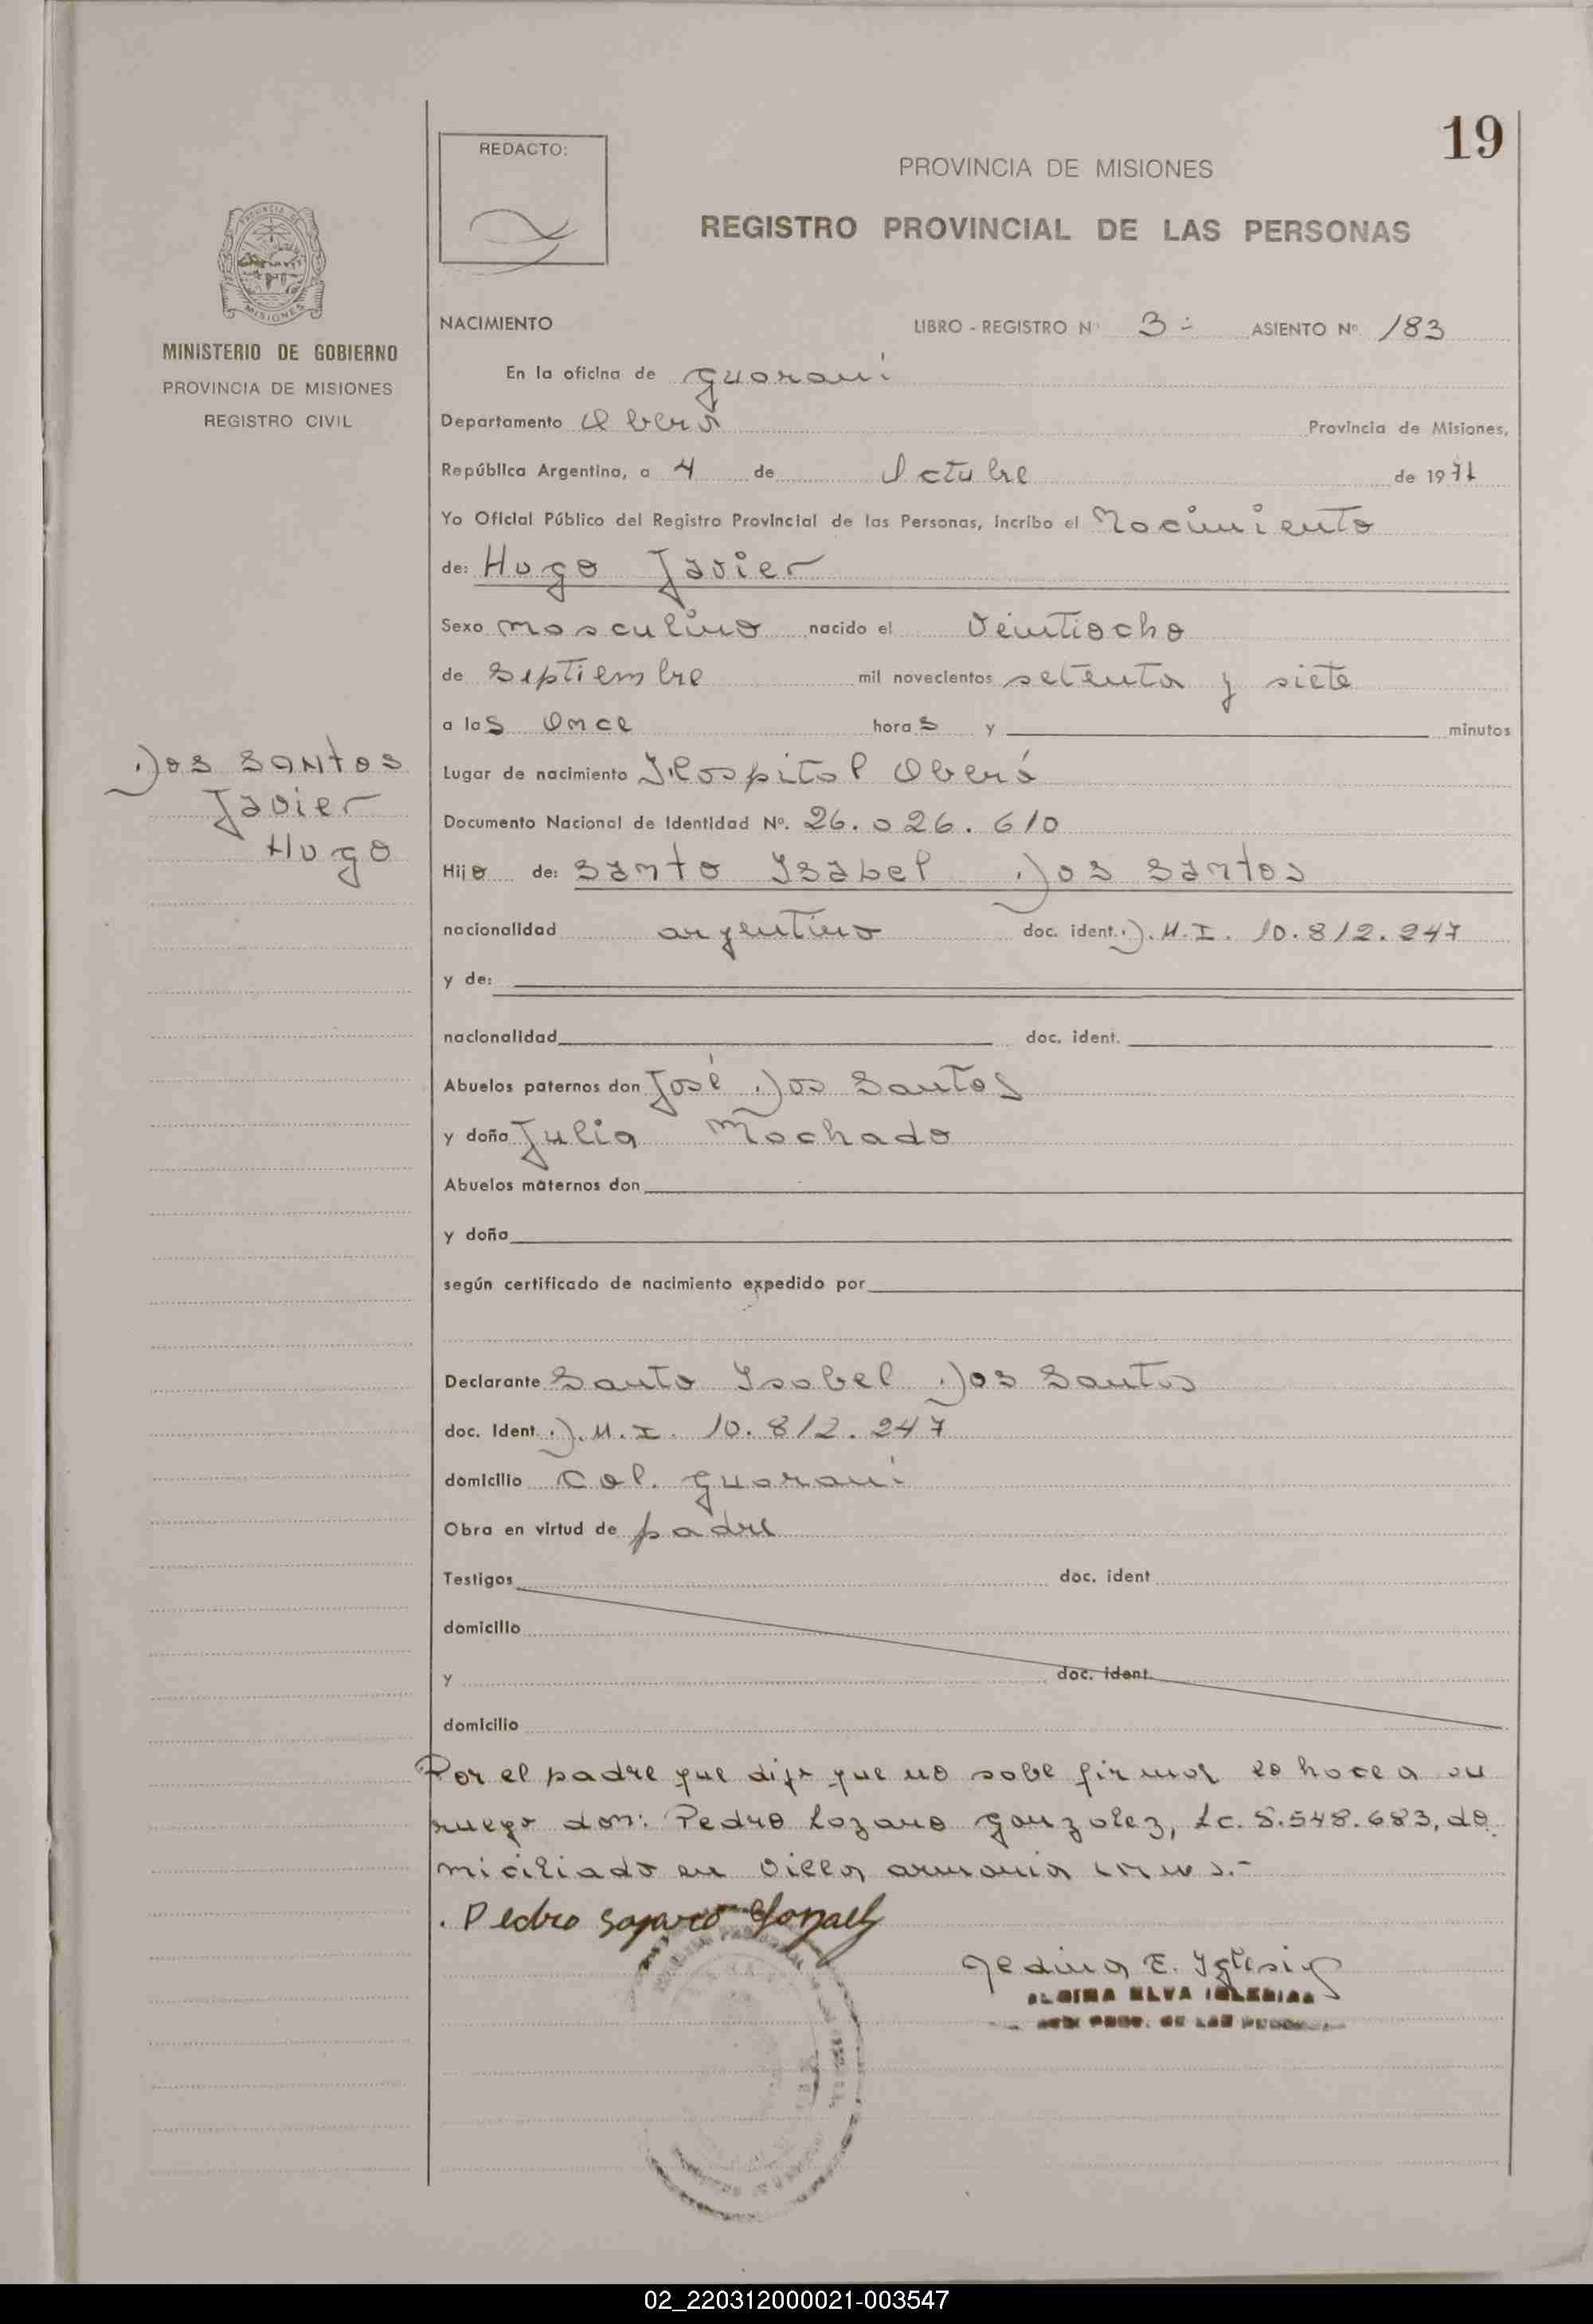 19
REDACTO:
PROVINCIA DE MISIONES
REGISTRO PROVINCIAL DE LAS PERSONAS
MINISTERIO DE GOBIERNO
PROVINCIA DE MISIONES
REGISTRO CIVIL
NACIMIENTO LIBRO - REGISTRO Nº 3 ASIENTO Nº 183
En la oficina de Guaraní
Departamento Oberá Provincia de Misiones,
República Argentina, a 4 de Octubre de 1977
Yo Oficial Público del Registro Provincial de las Personas, incribo el Nacimiento
de: Hugo Javier
Sexo masculino nacido el Veintiocho
de Septiembre mil novecientos setenta y siete
a las Once horas y minutos
Dos Santos
Javier
Hugo
Lugar de nacimiento Hospital Oberá
Documento Nacional de Identidad Nº. 26.026.610
Hijo de: Santo Isabel Dos Santos
nacionalidad argentino doc. ident. D.N.I. 10.812.247
y de:
nacionalidad doc. ident.
Abuelos paternos don José Dos Santos
y doña Julia Machado
Abuelos maternos don
y doña
según certificado de nacimiento expedido por
Declarante Santo Isabel Dos Santos
doc. Ident. D.N.I. 10.812.247
domicilio Col. Guaraní
Obra en virtud de padre
Testigos doc. ident
domicilio
y doc. ident.
domicilio
Por el padre que dijo que no sabe firmar lo hace a su
ruego don: Pedro Lozano Gonzalez, Lc. 8.548.683, do
miciliado en Villa armonia
Pedro Lozano Gonzalez
E. Iglesia
ELVA IGLESIAS
02_220312000021-003547